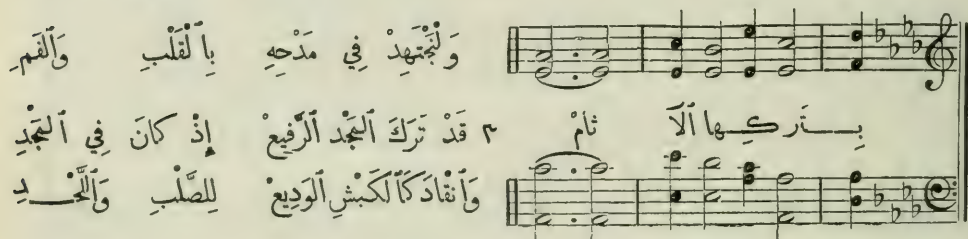 وَلْنَجْتَهِدْ فِي مَدْحِهِ بِٱلْقَلْبِ وَٱلْفَمِ
بِتَركِها ٱلآثامْ
٢ قَدْ تَرَكَ ٱلْمَجْد ٱلرَّفِيعْ إِذْ كانَ فِي ٱلْمَجْدِ
وَٱنْقَادَ كَٱلْكَبْشِ ٱلْوَدِيعْ لِلصَّلْبِ وَٱللَّحْدِ